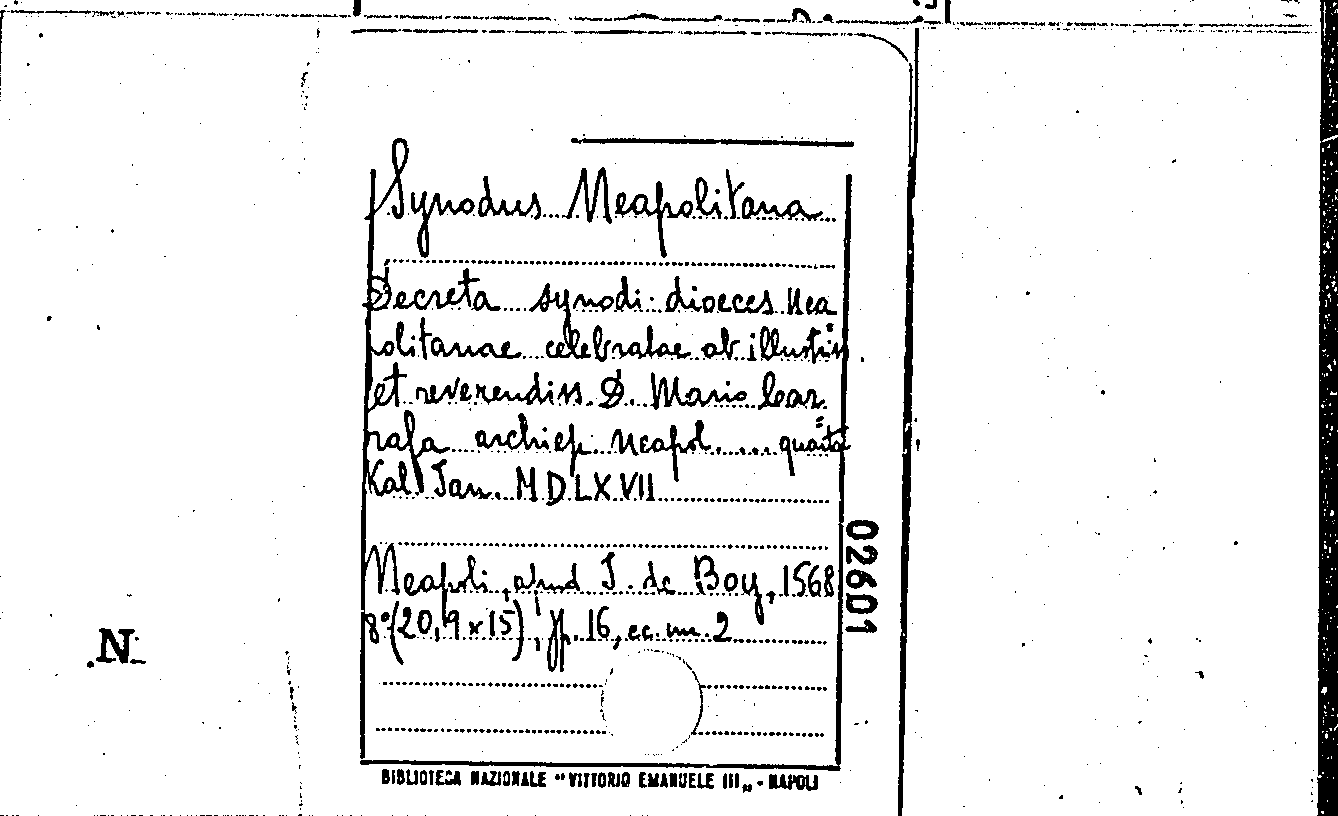 Synodus Neapolitana
Decreta synodi dioeces Nea
politanae celebratae ab illustriss.
et reverendiss. D. Mario Car
rafa archiep. neapol. ... quarta
Kal Jan. MDLXVII
Neapoli, apud J. de Boy, 1568
8° (20,9 x 15), pp. 16, cc. nn. 2
02601
.N.
BIBLIOTECA NAZIONALE "VITTORIO EMANUELE III„ - NAPOLI